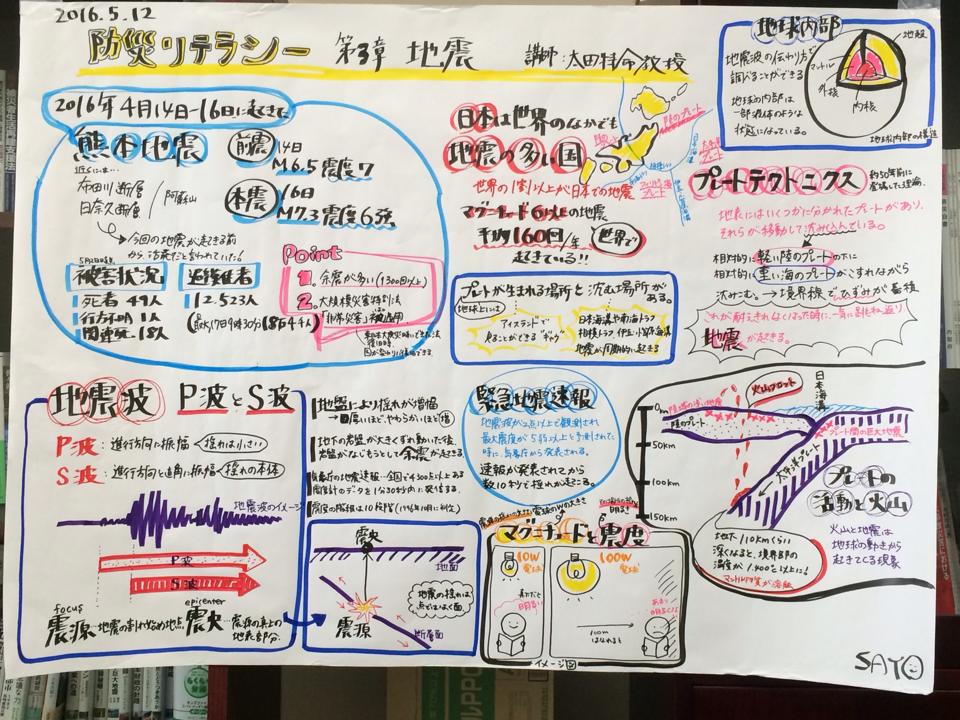 2016.5.12
防災リテラシー 第3章 地震 講師:太田科命教授
2016年4月14日-16日に起きた
熊本地震
前震 14日
M6.5 震度7
近くには…
布田川断層
日奈久断層 / 阿蘇山
本震 16日
M7.3 震度6強
今回の地震が起きる前
から、活発だと言われていた!
被害状況
死者 49人
行方不明 1人
関連死 18人
避難者
12,523人
Point
1. 余震が多い(1300回以上)
2. 大規模災害特別法
日本は世界のなかでも
地震の多い国
世界の1割以上が日本での地震
マグニチュード6以上の地震
平均160回/年 世界で
起きている!!
プレートが生まれる場所と沈む場所が
ある。
地球上には
アイスランドで
見ることができる"ギャウ"
日本海溝や南海トラフ
相模トラフ 伊豆・小笠原海溝
地震が周期的に起きる
地球内部
地震波の伝わり方で
調べることができる
地球の内部は
一部液体のような
状態になっている。
地殻
マントル
外核
内核
地球内部の構造
プレートテクトニクス
約50年前に
登場した理論。
地表にはいくつかに分かれたプレートがあり、
それらが移動して沈み込んでいる。
相対的に軽い陸のプレートの下に
相対的に重い海のプレートがこすれながら
沈みこむ。→境界線でひずみが蓄積
これが耐えきれなくなった時に一気に割れ、ね返り
地震が起きる。
地震波 P波とS波
P波:進行方向の振幅<揺れは小さい
S波:進行方向と直角に振幅<揺れの本体
地震波のイメージ
P波
S波
focus
震源…地震の割れ始め地点。
epicenter
震央…震源の真上の
地表部分。
地盤により揺れが増幅
地下の岩盤が大きくずれ動いた後、
岩盤がなじもうとして余震が起きる。
震度の階級は10段階(1996年10月に制定)
震央
地面
地震の揺れは
点ではなく面
震源
断層面
緊急地震速報
地震波が2点以上で観測され
最大震度が5弱以上と予測された
時に、気象庁から発表される。
速報が発表されてから
数10秒で揺れが起きる。
マグニチュードと震度
10W
電球
100W
電球
100m
はなれると
イメージ図
火山フロント
日本海溝
0km
50km
100km
150km
陸のプレート
プレート間の巨大地震
太平洋プレート
プレートの
活動と火山
火山と地震は
地球の動きから
起きてくる現象
地下110kmくらい
深くなると、境界部の
温度が1,400℃以上に!
SATO